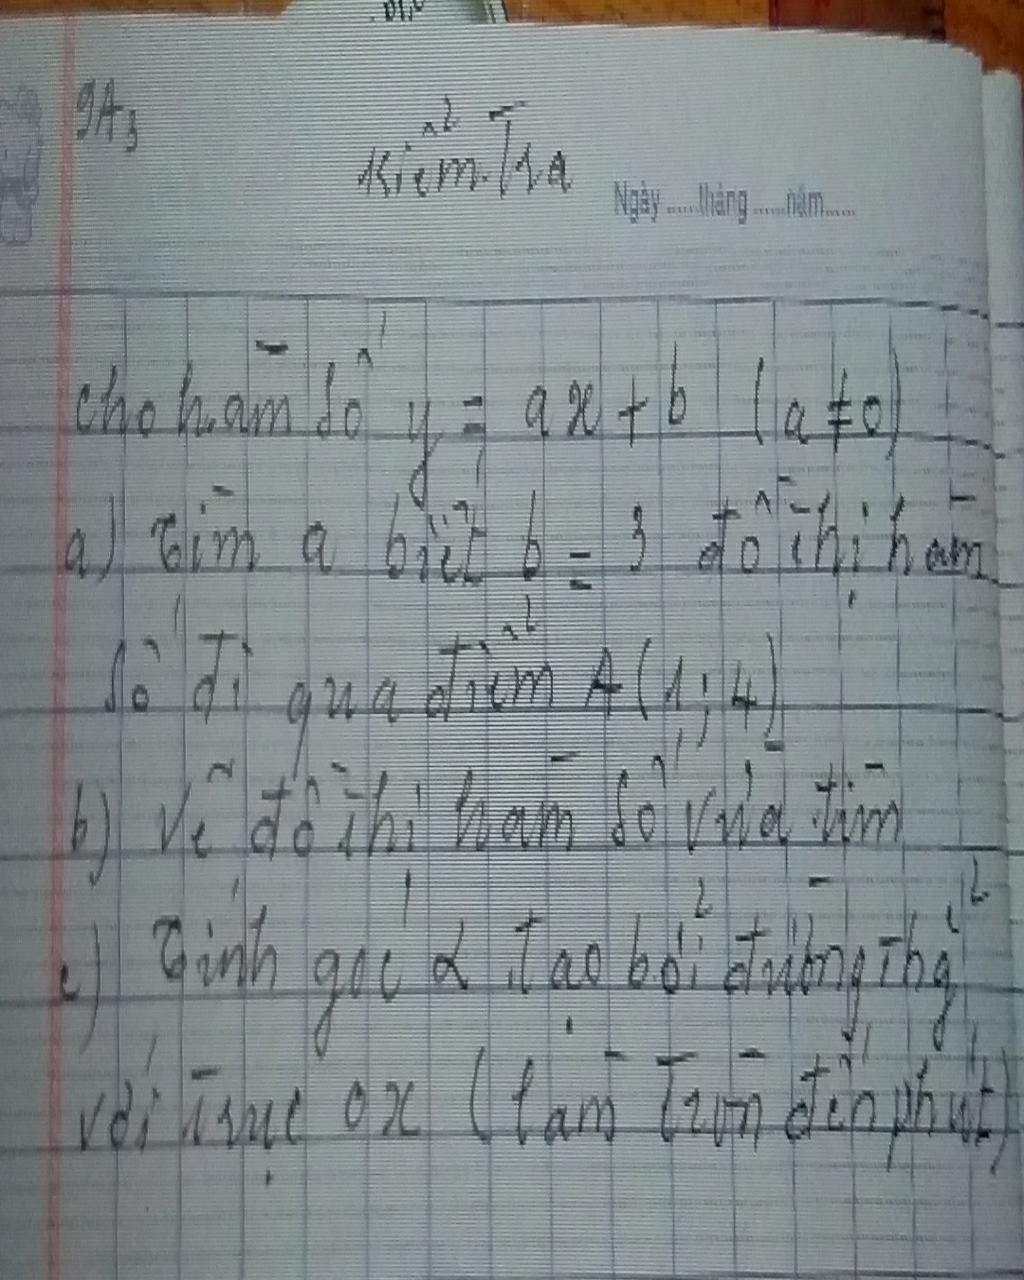 9A3
Kiểm Tra
Ngày ...... tháng ...... năm ......
cho hàm số y = ax + b (a ≠ 0)
a) Tìm a biết b = 3 đồ thị hàm
số đi qua điểm A(1; 4)
b) Vẽ đồ thị hàm số vừa tìm
c) Tính góc α tạo bởi đường thg̉
với trục ox (làm tròn đến phút)